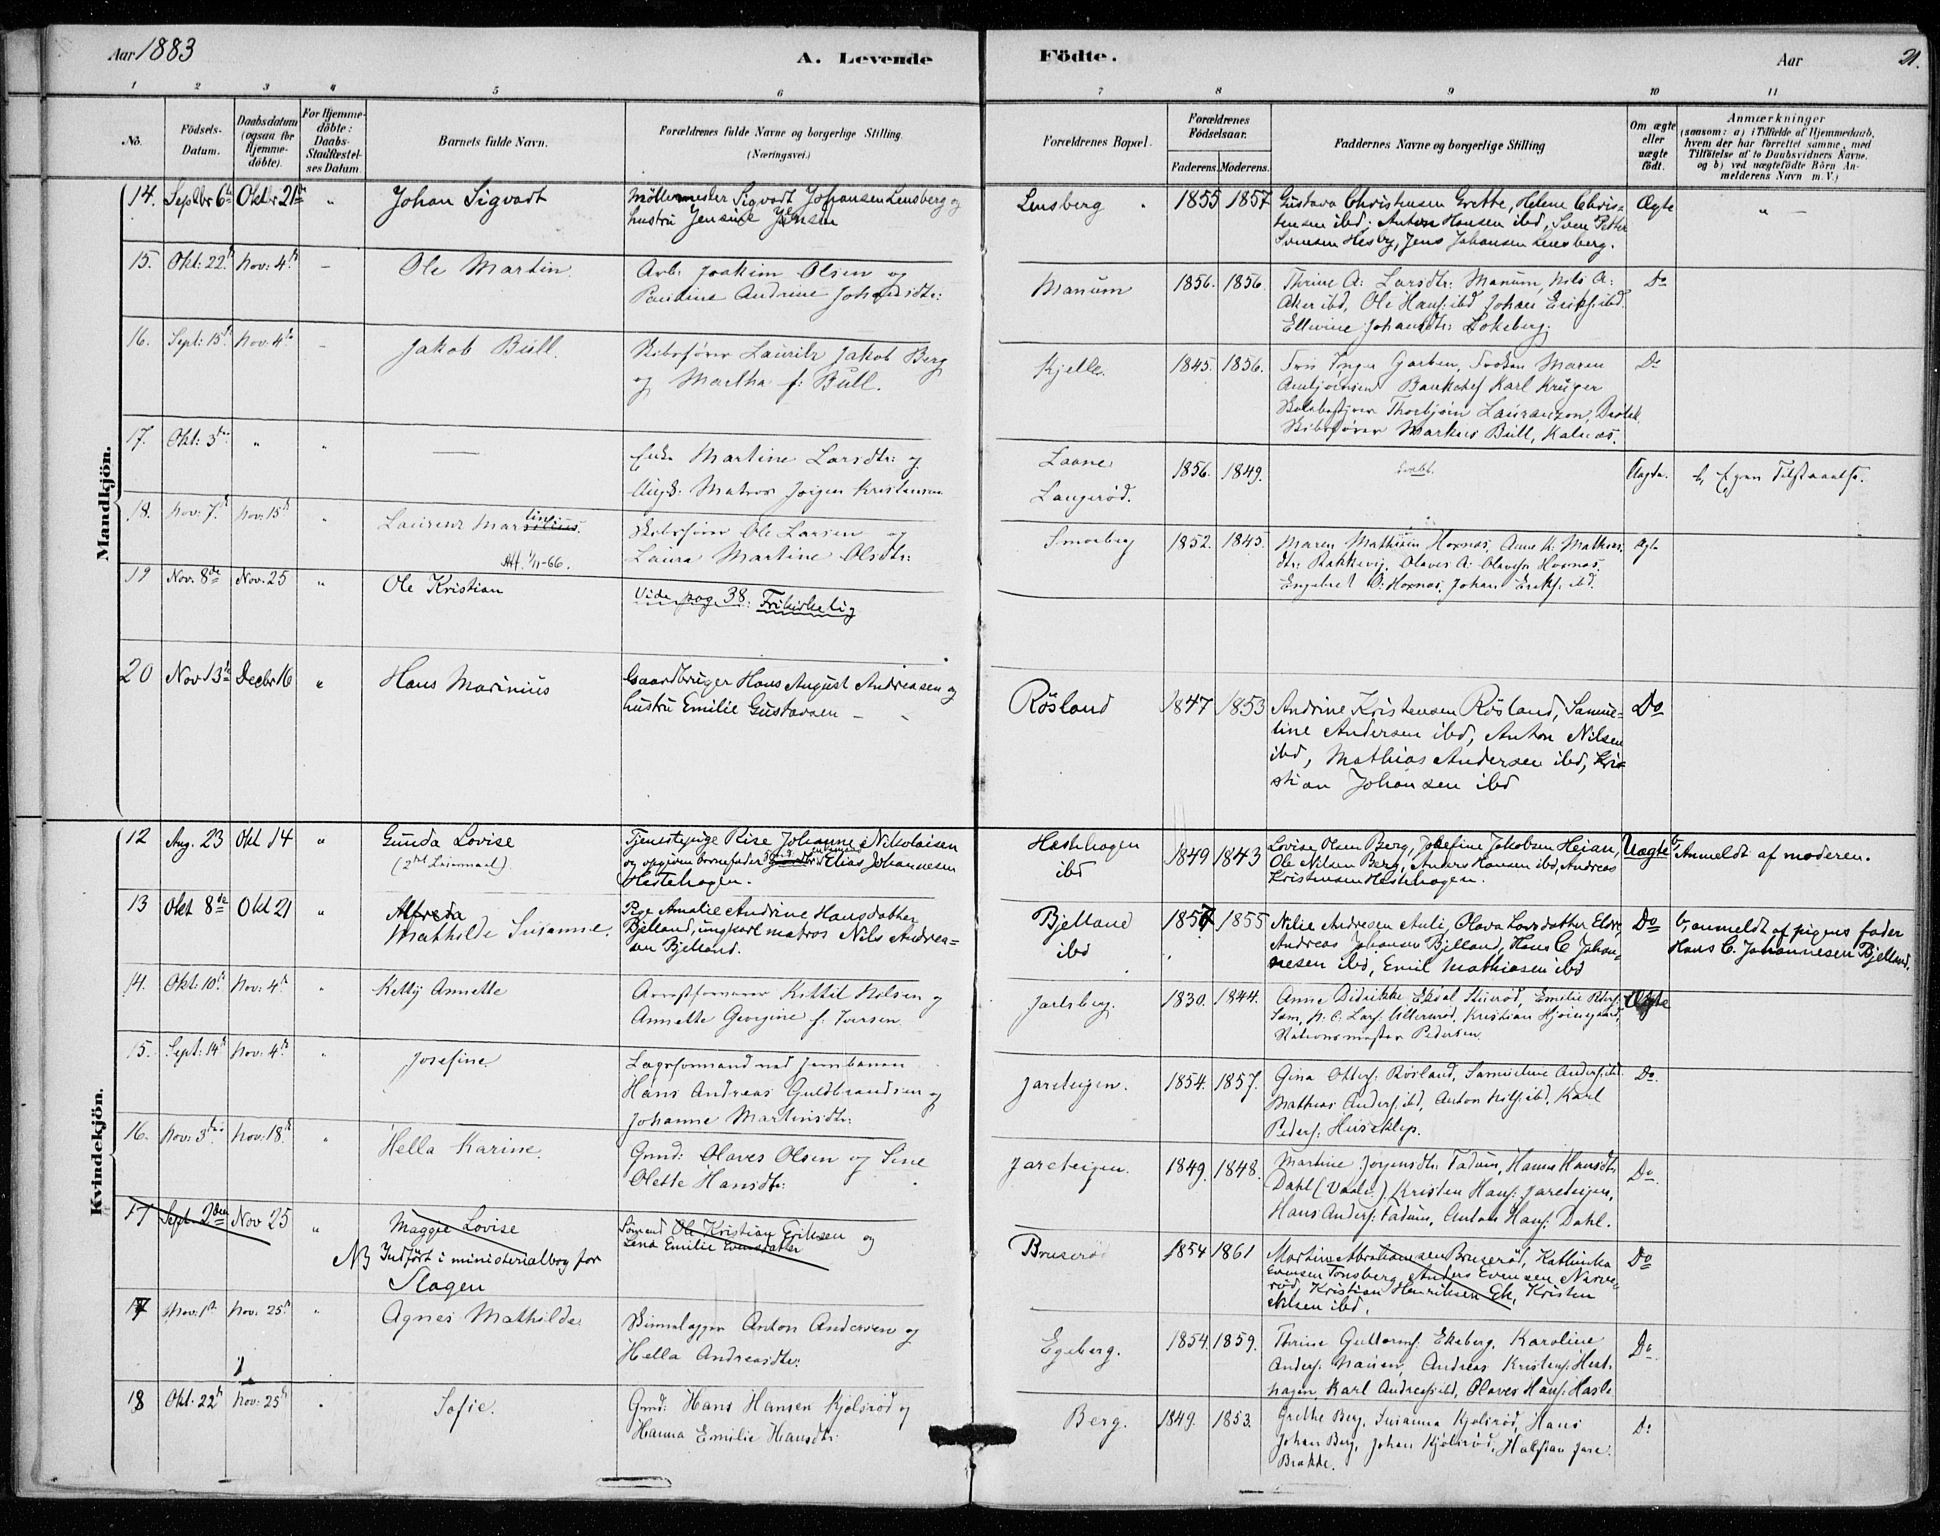 Aar 1883
A. Levende
Födte.
Aar
21.
1 2 3 4 5 6 7 8 9 10 11
No.
Födsels-Datum.
Daabsdatum (ogsaa for Hjemme-döbte).
For Hjemme-döbte: Daabs-Stadfæstel-ses Datum.
Barnets fulde Navn.
Forældrenes fulde Navne og borgerlige Stilling. (Næringsvei.)
Forældrenes Bopæl.
Forældrenes Födselsaar.
Faderens. Moderens.
Faddernes Navne og borgerlige Stilling
Om ægte eller uægte födt.
Anmærkninger
(saasom: a) i Tilfælde af Hjemmedaab, hvem der har forrettet samme, med Tilföielse af to Daabsvidners Navne. og b) ved uægtefödte Börn An-melderens Navn m. V.)
Mandkjön.
14. Septbr 6te Oktbr 21de " Johan Sigvart
Möllemester Sigvart Johansen Lensberg og
hustru Jensine Jensen
Lensberg 1855 1857
Gustava Christensen Grette, Helene Chris-
tensen ibd, Anton Hansen ibd, Sven Petter
Svensen Hesby, Jens Johansen Lensberg.
Ægte " -
15. Okt: 22 Nov: 4 - Ole Martin.
Arb: Joakim Olsen og
Pauline Andrine Johansdtr:
Manum 1856. 1856.
Thrine A: Larsdtr: Manum, Nils A:
Aker ibd, Ole Hans: ibd Johan Eriks: ibd.
Ellevine Johansdtr:
Do
16. Sept: 15 Nov: 4 - Jakob Bull.
Skibsförer Lauritz Jakob Berg
og Martha f: Bull.
Kjelle. 1845. 1856.
Maren
Karl Krüger
Thorbjörn
Skibsförer Markus Bull, Kalnæs.
Do
17. Okt: 3 " "
Martine Larsdtr: og
Matros Jörgen Kristensen
Laane
Langeröd.
1856. 1849.
Uægte. b, Egen
18. Nov: 7. Nov: 15 " Laurenz Martin
1/11-66.
Skibsförer Ole Larsen og
Laura Martine Olsdtr:
Smörberg 1852. 1845.
Maren Mathisen Hoxnæs, Anne K. Mathias-
dtr: Rakkevig, Olaves A: Olavesen Hoxnæs
Engebret O: Hoxnæs, Johan Eriks: ibd.
Ægte
19 Nov. 8de Nov. 25 " Ole Kristian
Vide pag 38: Frikirkelig
20 Nov 13de Decbr 16 " Hans Marinius
Gaardbruger Hans August Andreasen og
hustru Emilie Gustavsen -
Rösland 1847 1853
Andrine Kristensen Rösland, Samue-
line Andersen ibd, Anton Nilsen
ibd, Mathias Andersen ibd, Kri-
stian Johansen ibd
Do
Kvindekjön.
12 Aug. 23 Okt 14 " Gunda Lovise
(2det Leiermaal).
Tjenestepige Rise Johanne Nikolaisen
og opgiven barnefader Elias Johannesen
Hestehagen.
Hestehagen
ibd
1849 1843
Lovise Olsen Berg, Josefine Jakobsen Heian,
Ole Nilsen Berg, Anders Hansen ibd, Andreas
Kristensen Hestehagen.
Uægte b, Anmeldt af moderen.
13 Okt 8de Okt 21 " Alfreda
Mathilde Susanne.
Pige Amalie Andrine Hansdatter
Bjelland, ungkarl matros Nils Andrea-
sen Bjelland.
Bjelland
ibd
1857 1855
Nilie Andresen Auli, Olava Larsdatter
Andreas Johansen Bjelland, Hans C Johan-
nesen ibd, Emil Mathiasen ibd
Do b, anmeldt af pigens fader
Hans C. Johannesen Bjelland.
14. Okt: 10 Nov: 4 " Ketty Annette
Kittil Nilsen og
Annette Georgine f: Iversen.
Jarlsberg. 1830. 1844.
Anne Didrikke
Sem, Kristian
Stationsmester Pedersen.
Ægte
15. Sept: 14 Nov: 4 " Josefine.
Lagsformand ved Jernbanen
Hans Andreas Guldbrandsen og
Johanne Martinsdtr:
Jareteigen. 1854. 1857.
Gina Rösland, Samueline Anders: ibd
Mathias Anders: ibd, Anton Nils: ibd, Karl
Peders: Huseklep.
Do.
16. Nov: 3 Nov: 18 " Hella Karine.
Gmd: Olaves Olsen og Sine
Olette Hansdtr:
Jareteigen. 1849. 1848.
Martine Jörgensdtr: Fadum, Hanna Hansdtr:
Dahl (Vaale) Kristen Hans: Jareteigen,
Hans Anders: Fadum, Anton Hans: Dahl.
Do.
17 Sept. 2den Nov 25 " Maggie Lovise
NB Indfört i ministerialbog for
Slagen
Sömand Ole Kristian Eriksen og
Lena Emilie Evensdatter
Bruseröd 1854 1861
Martine Abrahamsen Bruseröd, Kathinka
Evensen Tönsberg, Anders Evensen
Kristian Henriksen Ek, Kristen
Nilsen ibd.
Do
17 Nov: 1 Nov: 25 " Agnes Mathilde
Anton Andersen og
Hella Andreasdtr:
Egeberg. 1854. 1859.
Thrine Guttorms: Ekeberg. Karoline
Anders: Andreas Kristens: Hest-
hagen, Karl Andreas: ibd, Olaves Hans: Hasle
Do.
18 Okt: 22 Nov: 25 Sofie.
Gmd: Hans Hansen Kjölsröd og
Hanna Emilie Hansdtr:
Berg. 1849. 1853.
Grethe Berg, Susanna Kjölsröd, Hans
Johan Berg, Johan Kjölsröd, Halfdan Jare-
Brække.
Do